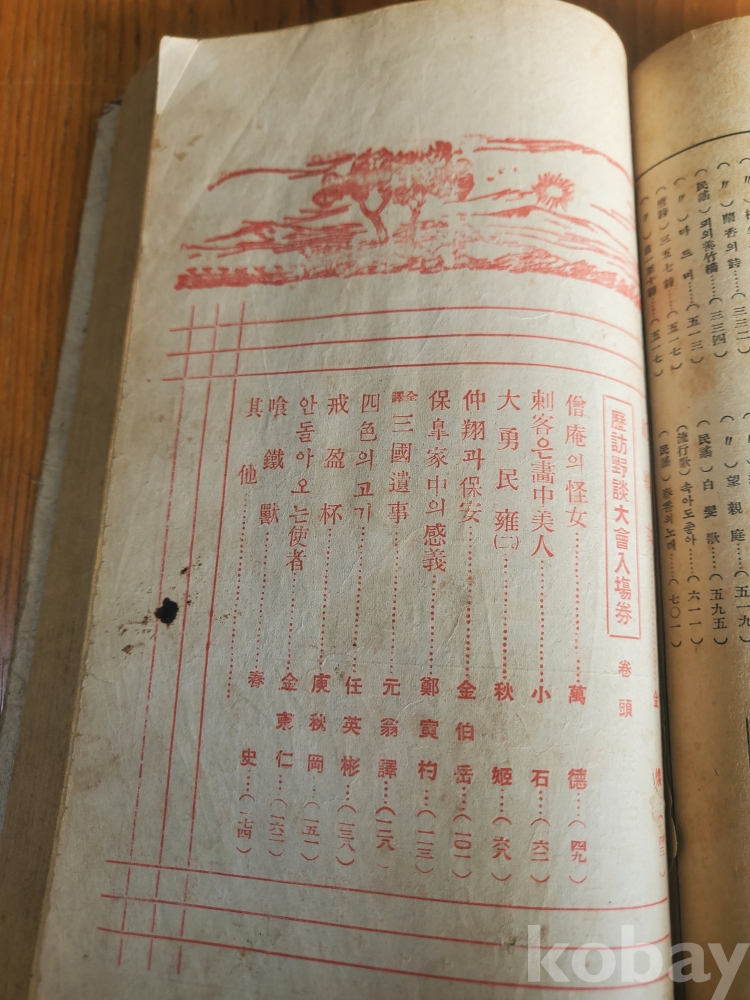 (〃)蘭香의詩……(三三四)
(民謠)피의善竹橋……(五一三)
(〃)마드며……(五一七)
(唐詩)三五七詩……(五一七)
(〃)望親庭……(五一九)
(民謠)白髮歌……(五九五)
(流行歌)속아도좋아……(六一一)
(民謠)春香의노래……(七〇一)
歷訪野談大會入塲券 卷頭
僧庵의怪女……萬德……(四九)
刺客은畵中美人……小石……(六二)
大勇民雍(二)……秋姬……(六八)
仲翔과保安……金伯岳……(一〇一)
保皐家中의感義……鄭寅杓……(一一三)
全譯 三國遺事……元翁譯……(一二九)
四色의고기……任英彬……(一三六)
戒盈杯……庾秋岡……(一五一)
안돌아오는使者……金東仁……(一六二)
喰鐵獸……春史……(一七四)
其他……
kobay